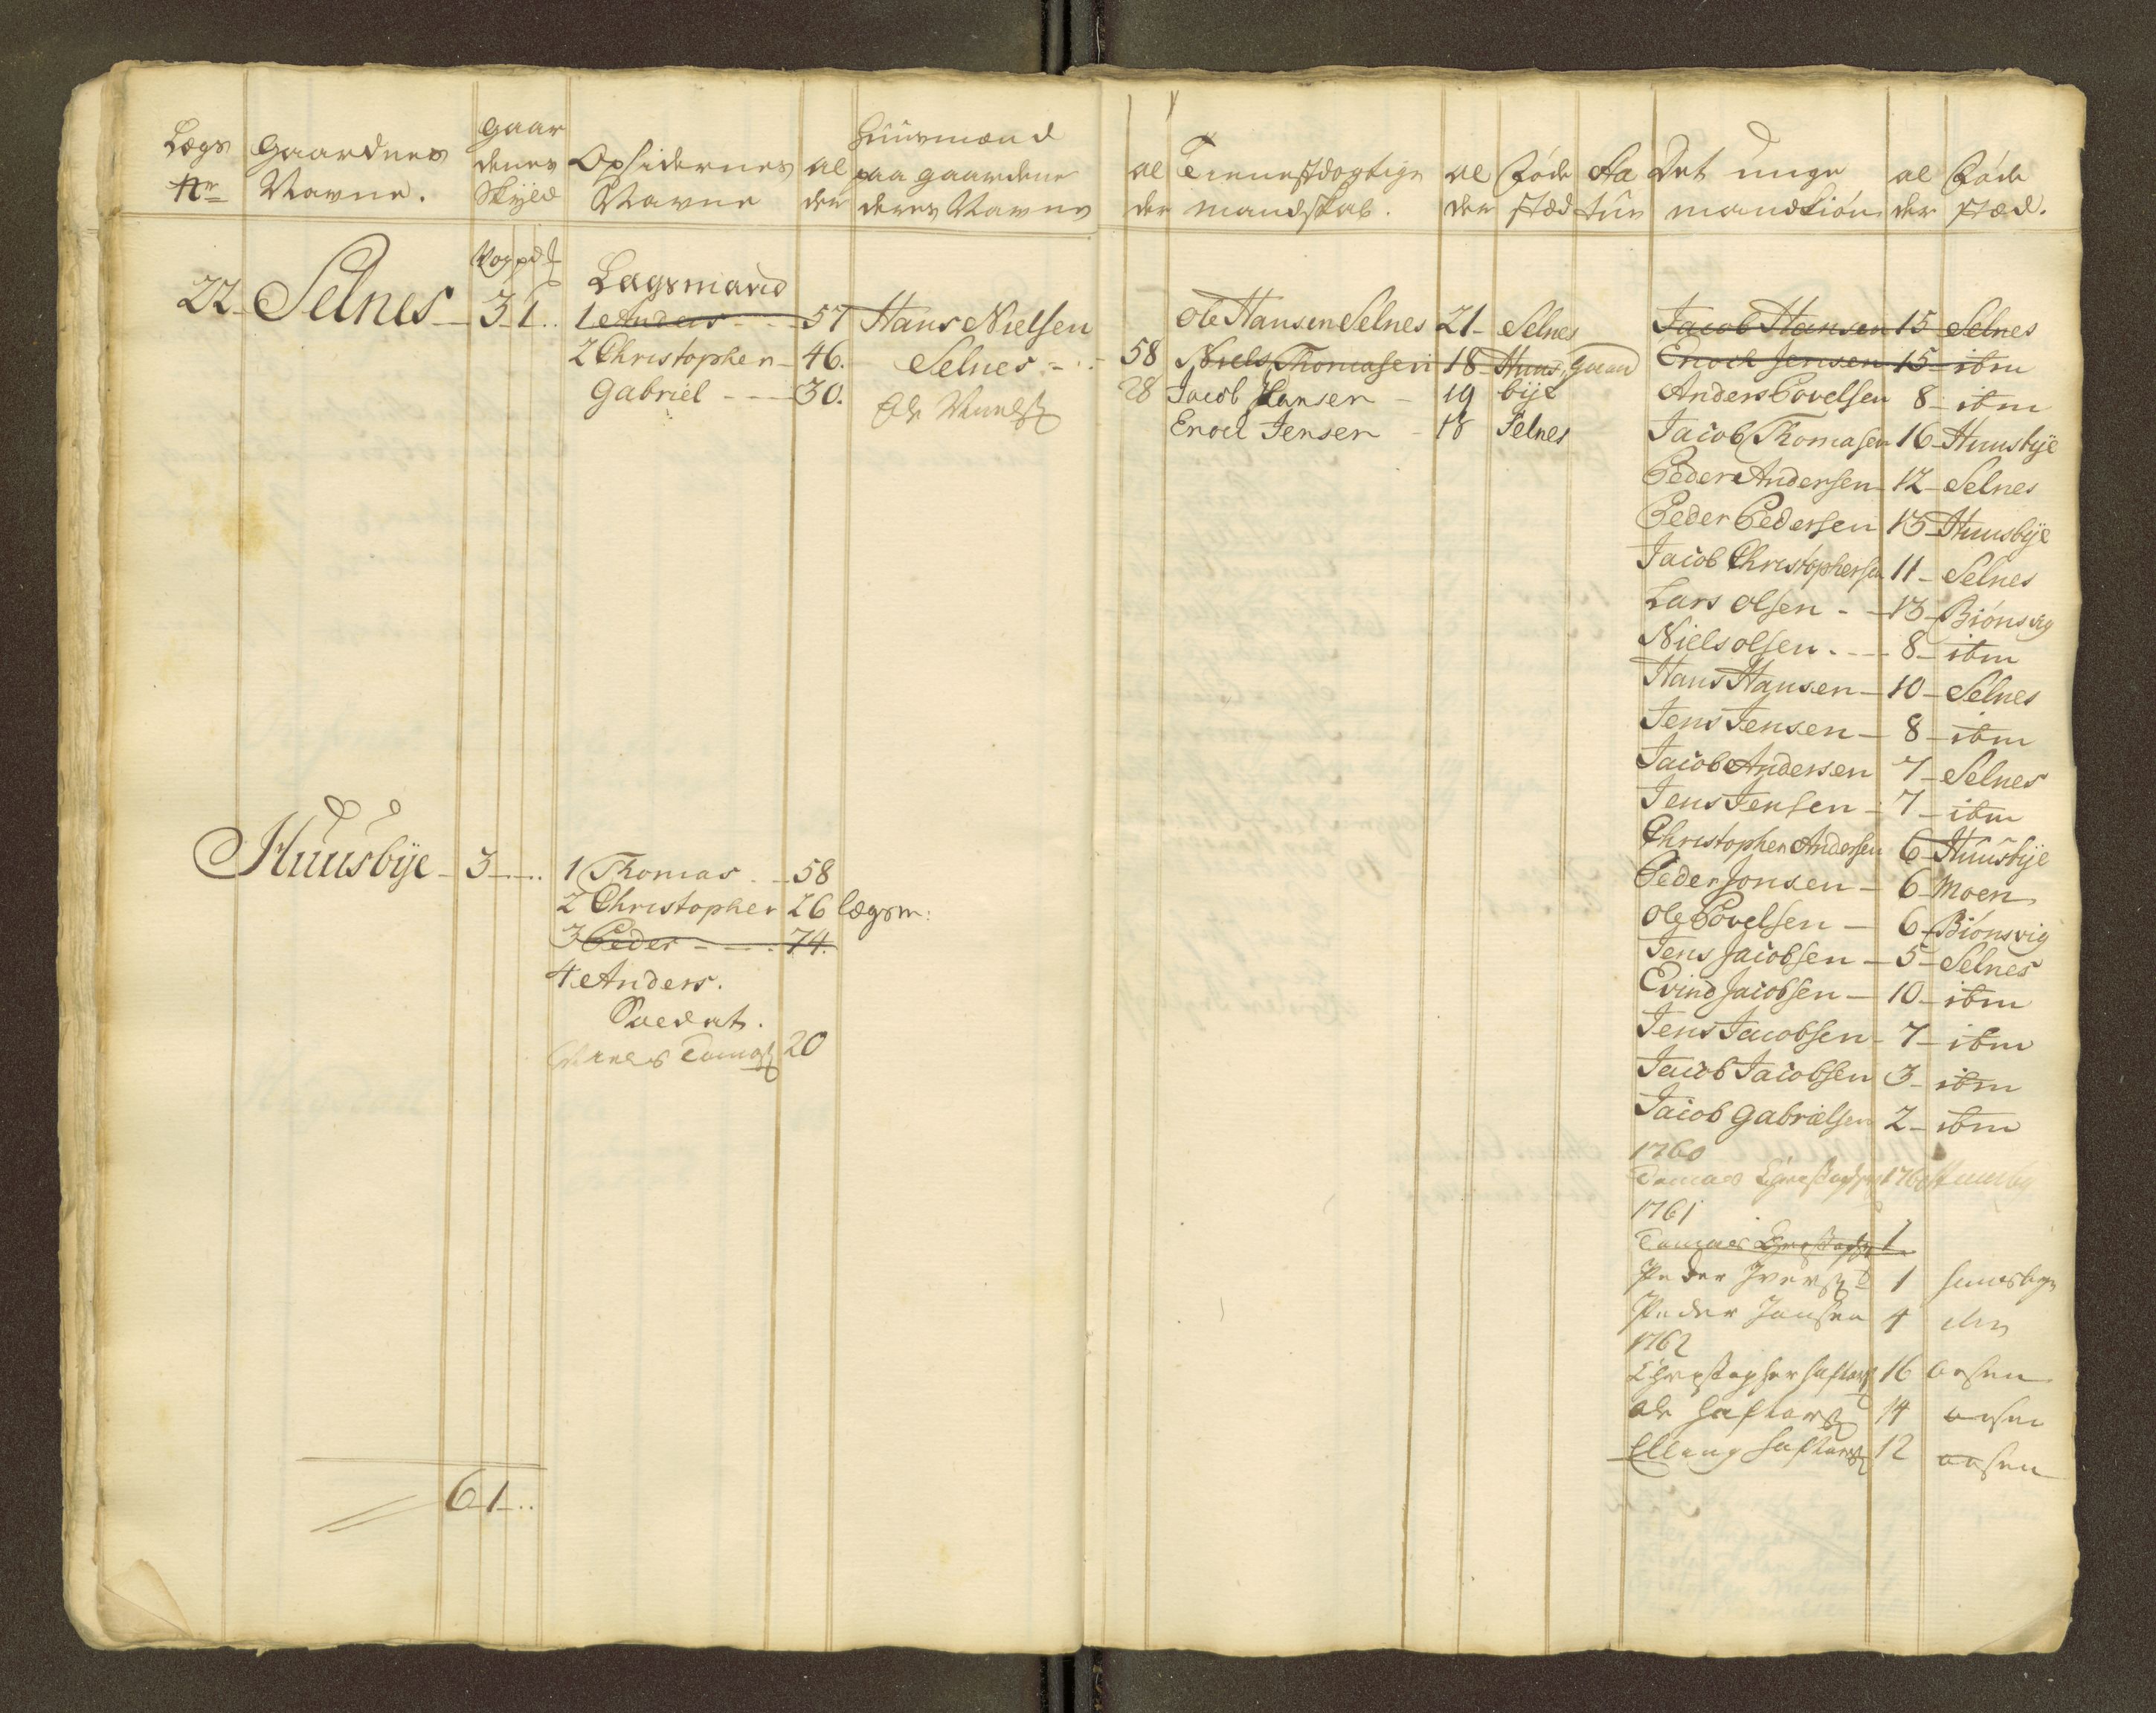 Lægs Nr
Gaardnes Navne.
Gaardenes Skyld
Opsidernes Navne
alder
Huusmænd paa gaardene deres Navne
alder
Tienestdygtige mandskab.
alder
Føde stæd
Hatur
Det unge mandkiøn
alder
Føde stæd.
22 Selnes 3 1..
Lagsmand
1 Anders 57 Hans Nielsen Ole Hansen Selnes 21 Selnes Jacob Hansen 15 Selnes
2 Christopher 46. Selnes 58 Niels Thomasen 18 Huus Gaard Enoch Jensen 15 ibm
Gabriel 30. 28 Jacob Hansen 19 bÿe Anders Povelsen 8 ibm
Enoch Jensen 18 Selnes Jacob Thomasen 16 Huusbÿe
Peder Andersen 12 Selnes
Peder Pedersen 13 Huusbÿe
Jacob Christophersen 11 Selnes
Lars Olsen 13 Biønsvig
Niels olsen 8 ibm
Hans Hansen 10 Selnes
Jens Jensen 8 ibm
Jacob Andersen 7 Selnes
Jens Jensen 7 ibm
Christopher Andersen 6 Huusbÿe
Huusbÿe 3 1 Thomas 58 Peder Jonsen 6 Moen
2 Christopher 26 lægsm: Ole Povelsen 6 Biønsvig
3 Peder 74. Jens Jacobsen 5 Selnes
4 Anders. Evind Jacobsen 10 ibm
Soldat. Jens Jacobsen 7 ibm
20 Jacob Jacobsen 3 ibm
Jacob Gabrielsen 2 ibm
1760
Tomas 1760 Huusby
1761
Tomas 1
Peder 1 Huusbye
Peder Jonsen 4
1762
Christopher 16 aasen
Ole 14 aasen
Elling 12 aasen
61..